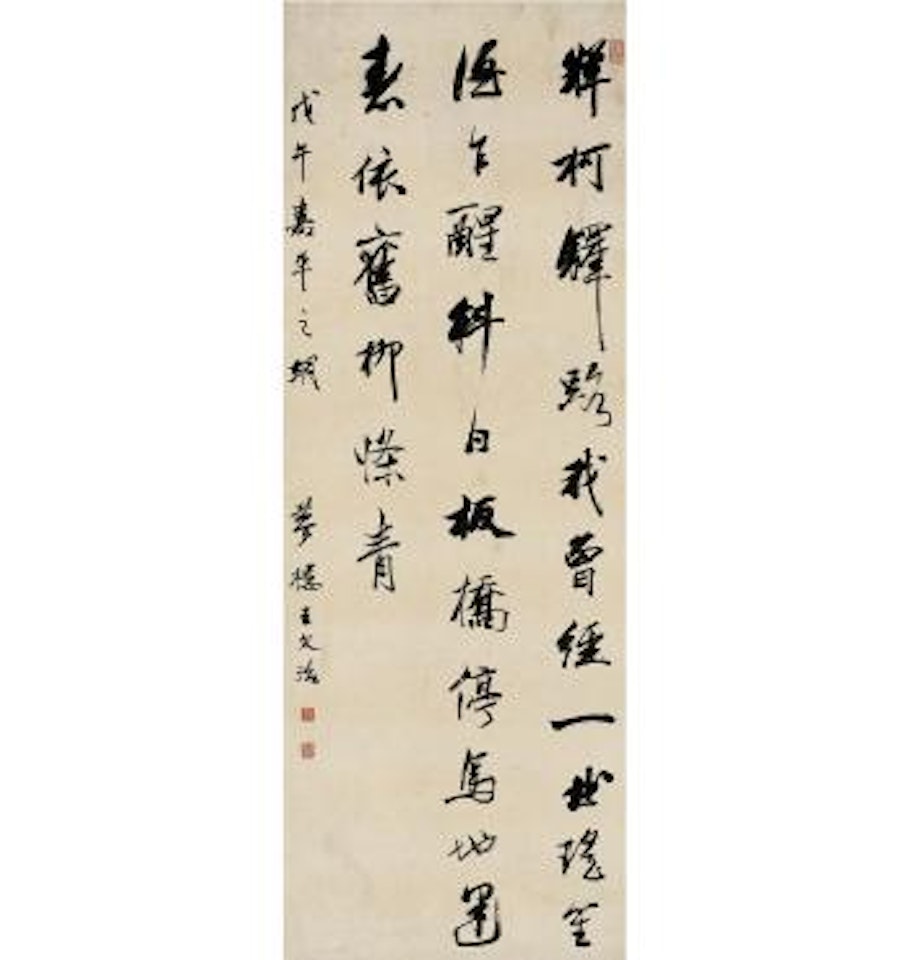 牂柯驛路我曾經一曲瑤笙
酒乍醒斜日板橋停馬地
春依舊柳條青
戊午嘉平之
夢樓王文治